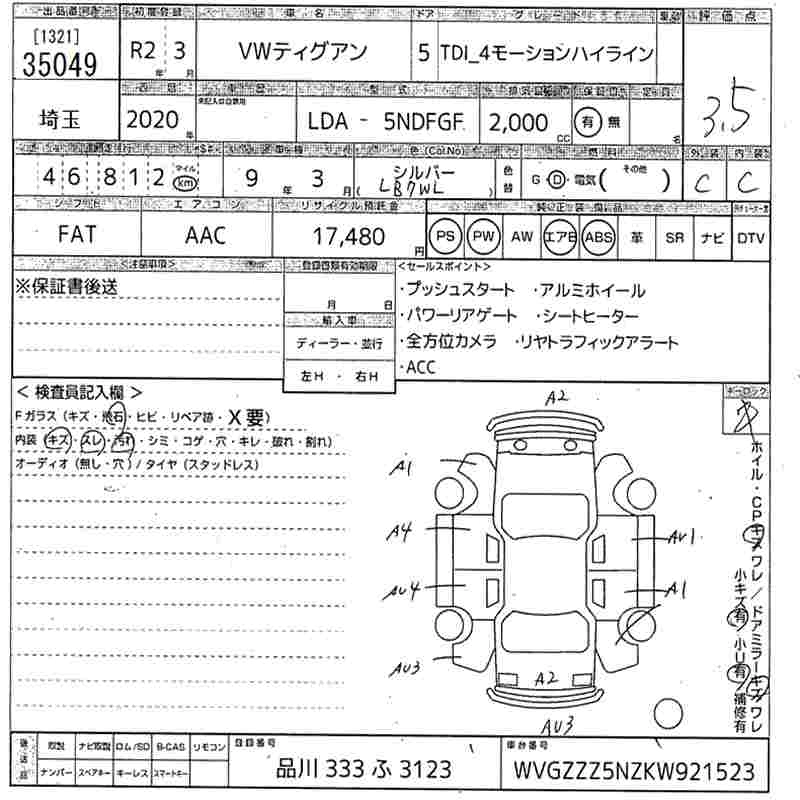 出品番号 初度登録 車名 ドア グレード 車歴 評価点
[1321]
35049 R2年 3月 VWティグアン 5 TDI_4モーションハイライン
3.5
型式 排気量
埼玉 2020年 LDA - 5NDFGF 2,000CC 有 無 名
色(Col No) 燃料 外装 内装
46812 マイル km 9年 3月 シルバー (LB7WL) 色替 G・D・電気( その他 ) C C
シフト エアコン リサイクル預託金 純正装備品
FAT AAC 17,480円 PS PW AW エアB ABS 革 SR ナビ DTV
<注意事項> 登録書類有効期限 <セールスポイント>
※保証書後送 月 日 ・プッシュスタート ・アルミホイール
輸入車 ・パワーリアゲート ・シートヒーター
ディーラー・並行 ・全方位カメラ ・リヤトラフィックアラート
左H ・ 右H ・ACC
< 検査員記入欄 > キーロック
Fガラス (キズ・飛石・ヒビ・リペア跡・X要)
内装 (キズ・スレ・汚れ・シミ・コゲ・穴・キレ・破れ・割れ)
オーディオ (無し・穴) / タイヤ (スタッドレス)
A2
A1
A4 AU1
AU4 A1
AU3 A2
AU3
ホイル・CPキズワレ/ドアミラーキズワレ
小キズ有・小U有・補修有
後送品 取説 ナビ取説 ロム/SD B-CAS リモコン 登録番号 車台番号
ナンバー スペアキー キーレス スマートキー 品川 333 ふ 3123 WVGZZZ5NZKW921523